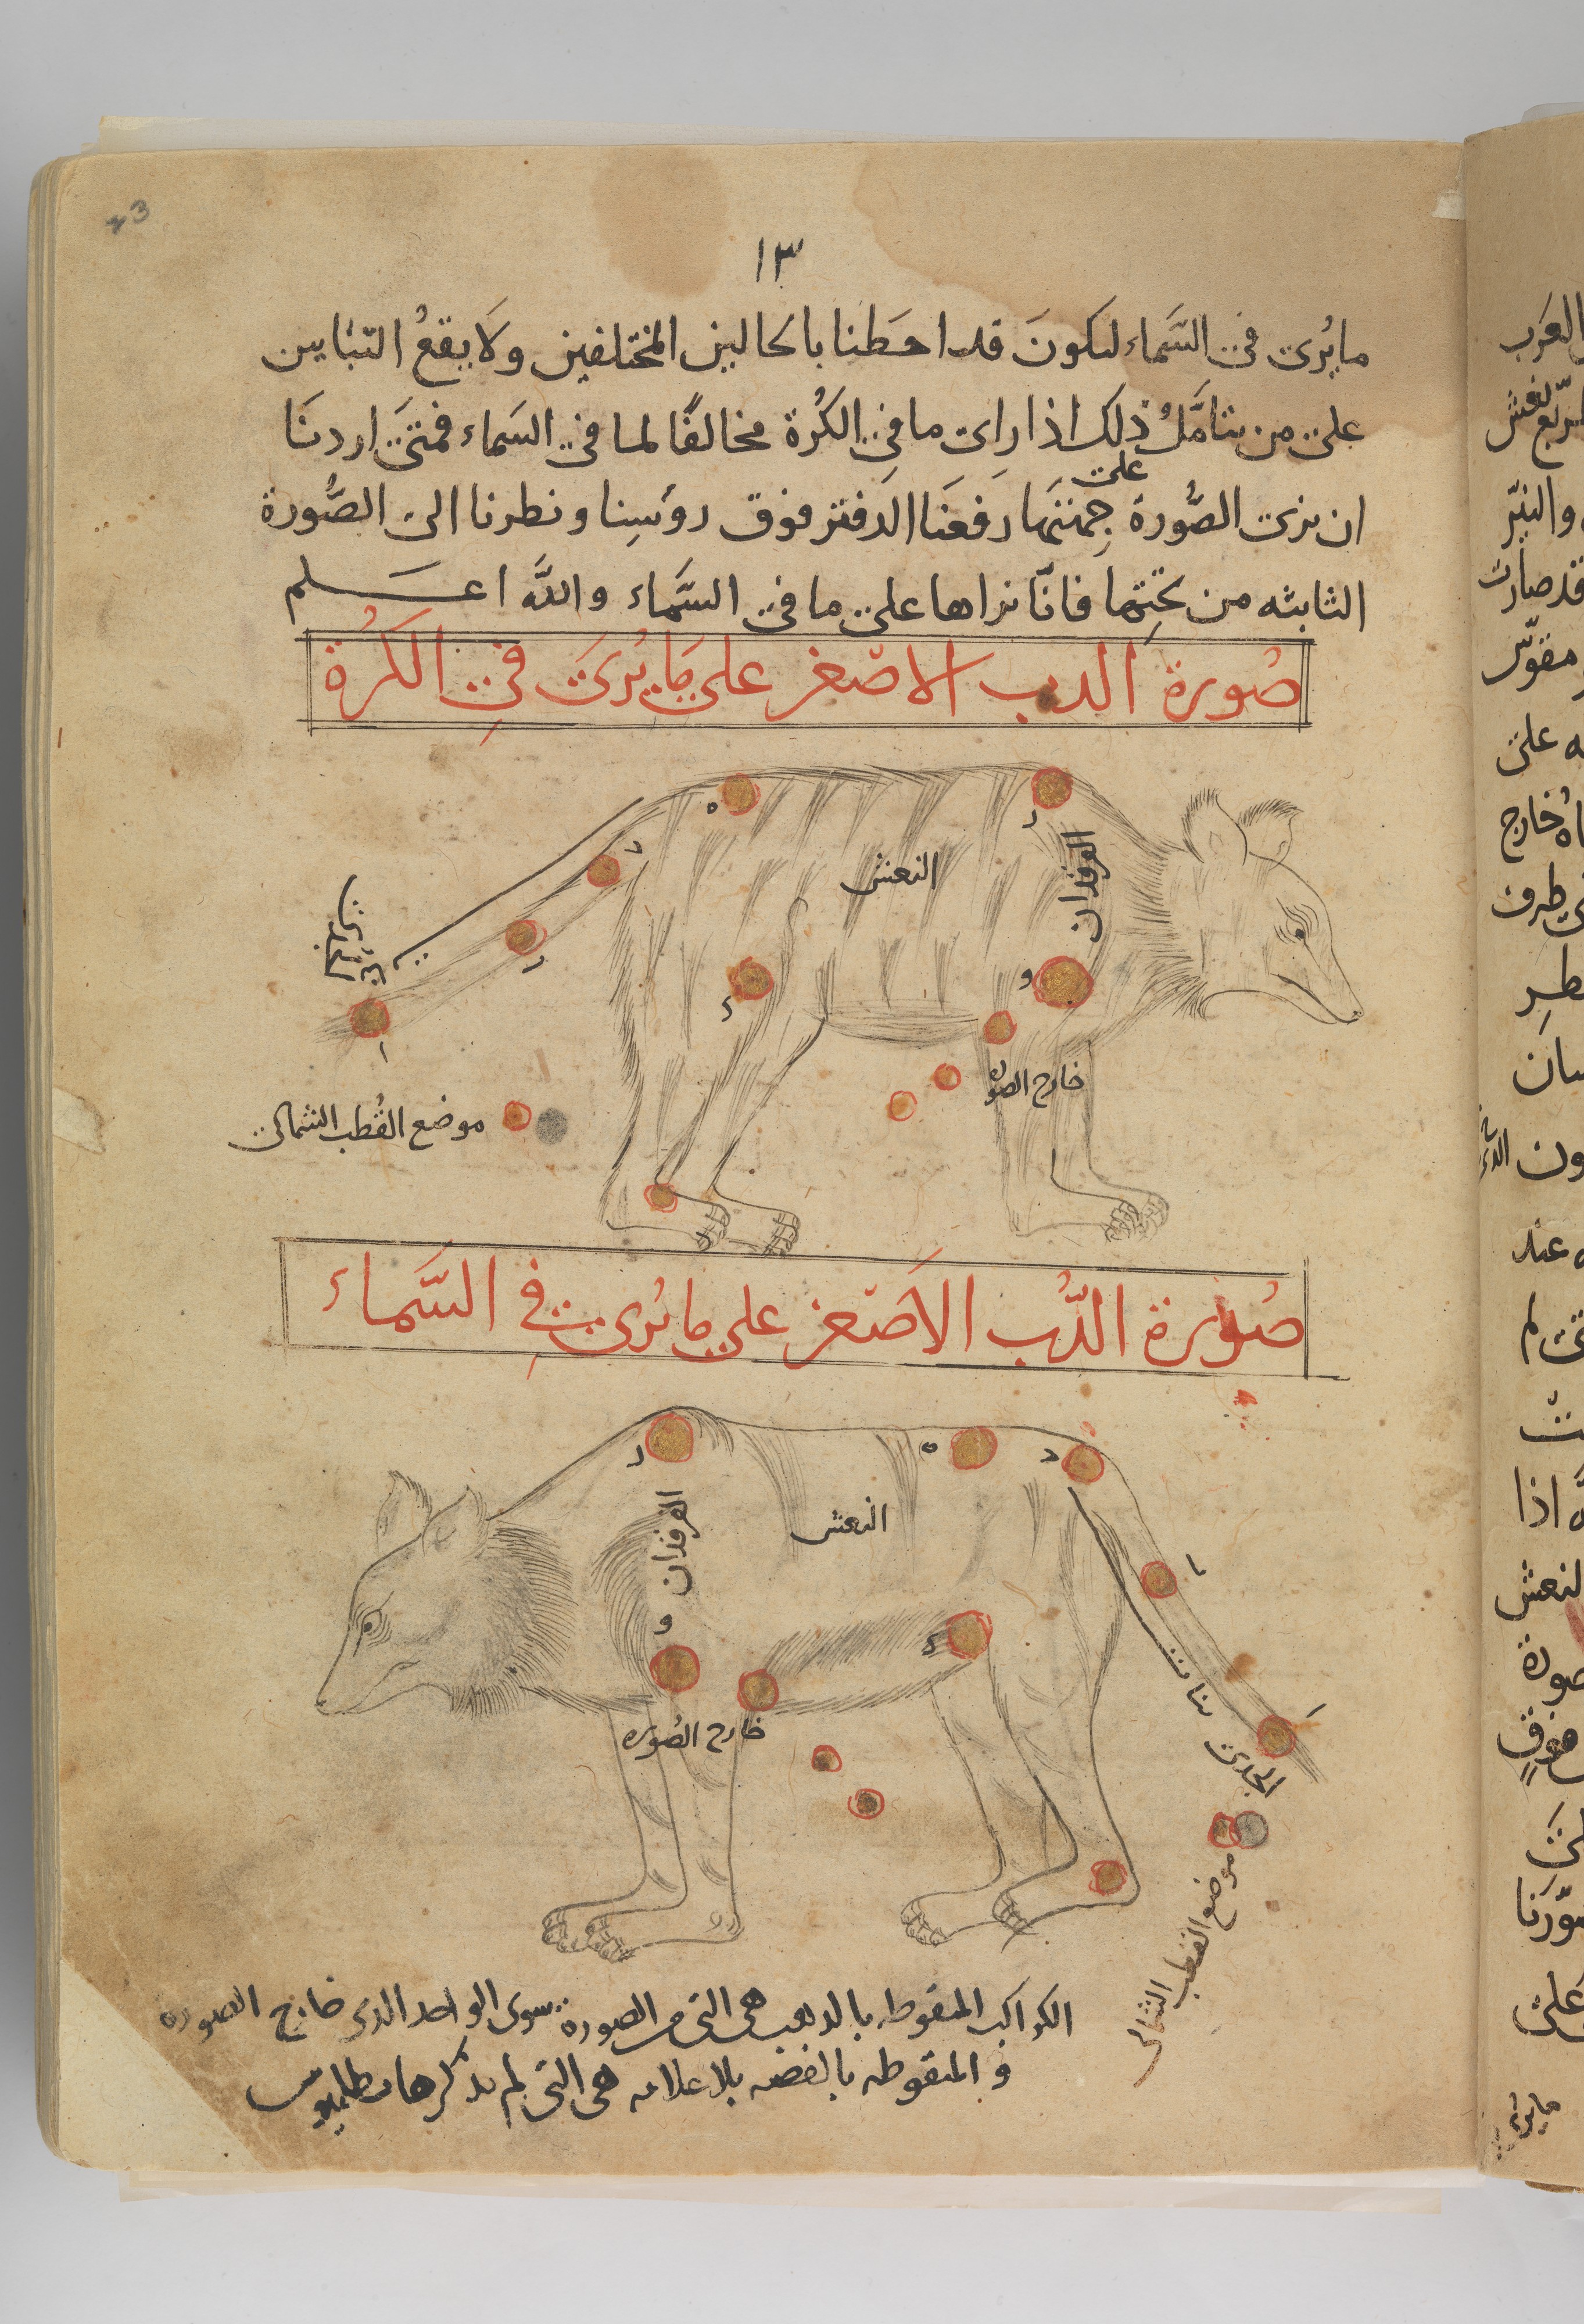 23
١٣
ما يُرى في السَّماء ليكونَ قد احَطنا بالحالين المختلفين ولا يقعُ التباين
على من يتامَّلُ ذلك اذا راى ما في الكُرة مخالفًا لما في السَماء فمتى اردنَا
ان نرى الصُّورة على جهتها رَفعنَا الدَفتر فوق روسِنا ونظرنا الى الصُّورة
الثانيه من تحتِها فانّا نراها على ما في السَّماء والله اعلم
صُورة الدب الاصغر على مَا يُرىَ في الكُرة
ه
ر
ح
النعش
الفرقدان
بنات
الجدي
ب
د
و
ا
خارج الصوره
موضع القُطب الشمالي
صُورة الدُّب الاَصغر على ما يُرى في السَّماء
ر
ه
ح
النعش
الفرقدان
ب
و
د
بنات
ا
خارج الصُوره
الجدي
موضع القطب الشمالي
الكواكب المنقوطه بالذهب هي التي من الصورة سوى الواحد الذي خارج الصوره
و المنقوطه بالفضه بلا علامه هي التي لم يذكرها بطلميوس
العَرب
والنيّر
قد صارت
مقوّس
ه على
خارج
طرف
عند
لم
اذا
النعش
صورة
صوّرنا
على